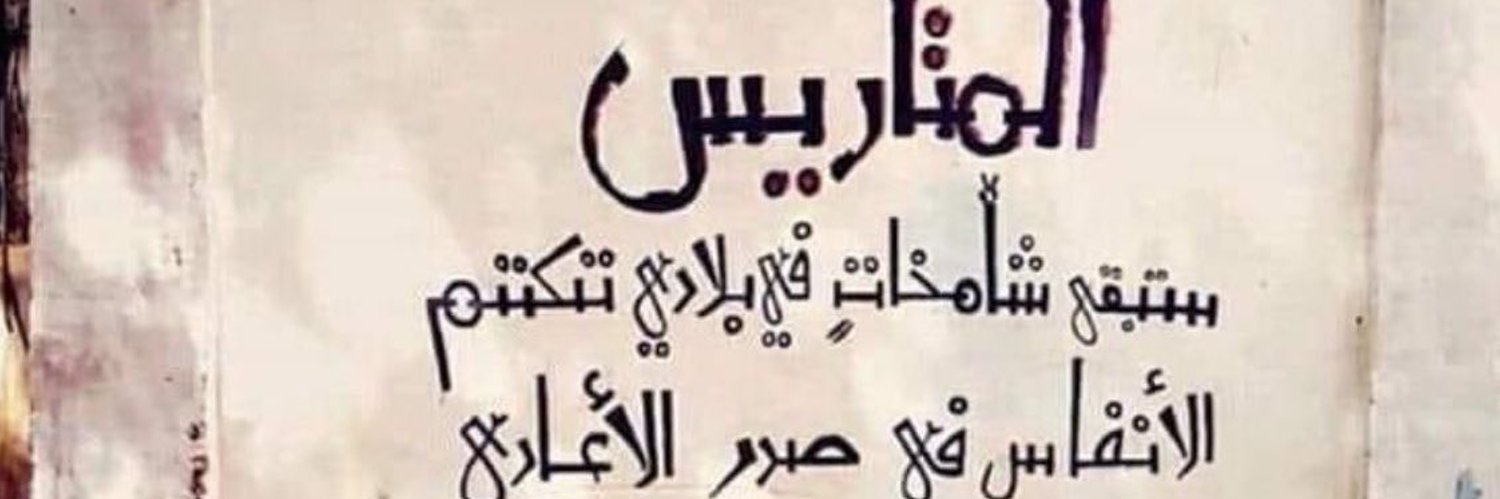 المتاريس
ستبقى شامخاتٍ في بلادي تكتم
الأنفاس في صدر الأعادي